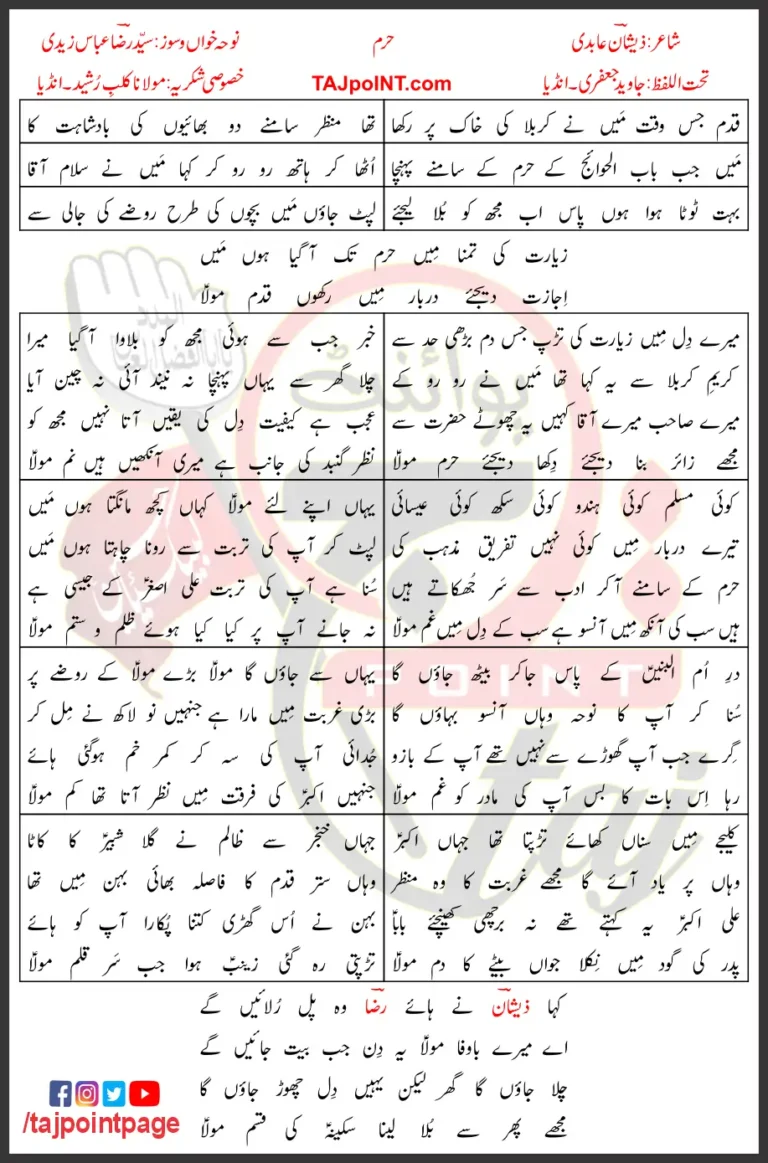 شاعر: ذیشان عابدی حرم نوحہ خواں و سوز: سیّد رضا عباس زیدی
تحت اللفظ: جاوید جعفری۔ انڈیا TAJpoINT.com خصوصی شکریہ: مولانا کلبِ رُشید۔ انڈیا
قدم جس وقت مَیں نے کربلا کی خاک پر رکھا تھا منظر سامنے دو بھائیوں کی بادشاہت کا
مَیں جب باب الحوائج کے حرم کے سامنے پہنچا اُٹھا کر ہاتھ رو رو کر کہا مَیں نے سلام آقا
بہت ٹوٹا ہوا ہوں پاس اب مجھ کو بُلا لیجئے لپٹ جاؤں مَیں بچوں کی طرح روضے کی جالی سے
زیارت کی تمنا مِیں حرم تک آ گیا ہوں مَیں
اِجازت دیجئے دربار مِیں رکھوں قدم مولاؑ
میرے دِل مِیں زیارت کی تڑپ جس دم بڑھی حد سے
کریمِ کربلا سے یہ کہا تھا مَیں نے رو رو کے
میرے صاحب میرے آقا کہیں یہ چھوٹے حضرت سے
مجھے زائر بنا دیجئے دِکھا دیجئے حرم مولاؑ
خبر جب سے ہوئی مجھ کو بلاوا آ گیا میرا
چلا گھر سے یہاں پہنچا نہ نیند آئی نہ چین آیا
عجب ہے کیفیت دِل کی یقیں آتا نہیں مجھ کو
نظر گنبد کی جانب ہے میری آنکھیں ہیں نم مولاؑ
کوئی مسلم کوئی ہندو کوئی سکھ کوئی عیسائی
تیرے دربار مِیں کوئی نہیں تفریق مذہب کی
حرم کے سامنے آ کر ادب سے سَر جُھکاتے ہیں
ہیں سب کی آنکھ مِیں آنسو ہے سب کے دِل مِیں غم مولاؑ
یہاں اپنے لئے مولاؑ کہاں کچھ مانگتا ہوں مَیں
لپٹ کر آپ کی تربت سے رونا چاہتا ہوں مَیں
سُنا ہے آپ کی تربت علی اصغرؑ کے جیسی ہے
نہ جانے آپ پر کیا کیا ہوئے ظلم و ستم مولاؑ
درِ اُم البنینؑ کے پاس جا کر بیٹھ جاؤں گا
سُنا کر آپ کا نوحہ وہاں آنسو بہاؤں گا
گِرے جب آپ گھوڑے سے نہیں تھے آپ کے بازو
رہا اِس بات کا بس آپ کی مادر کو غم مولاؑ
یہاں سے جاؤں گا مولاؑ بڑے مولاؑ کے روضے پر
بڑی غربت مِیں مارا ہے جنہیں نو لاکھ نے مِل کر
جُدائی آپ کی سہ کر کمر خم ہو گئی ہائے
جنہیں اکبرؑ کی فرقت مِیں نظر آتا تھا کم مولاؑ
کلیجے مِیں سناں کھائے تڑپتا تھا جہاں اکبرؑ
وہاں پر یاد آئے گا مجھے غربت کا وہ منظر
علی اکبرؑ یہ کہتے تھے نہ برچھی کھینچئے باباؑ
پدر کی گود مِیں نِکلا جواں بیٹے کا دم مولاؑ
جہاں خنجر سے ظالم نے گلا شبیرؑ کا کاٹا
وہاں ستر قدم کا فاصلہ بھائی بہن مِیں تھا
بہن نے اُس گھڑی کتنا پُکارا آپ کو ہائے
تڑپتی رہ گئی زینبؑ ہوا جب سَر قلم مولاؑ
کہا ذیشان نے ہائے رضا وہ پل رُلائیں گے
اے میرے باوفا مولاؑ یہ دِن جب بیت جائیں گے
چلا جاؤں گا گھر لیکن یہیں دِل چھوڑ جاؤں گا
مجھے پھر سے بُلا لینا سکینہؑ کی قسم مولاؑ
/tajpointpage
پوائنٹ
POINT
taj